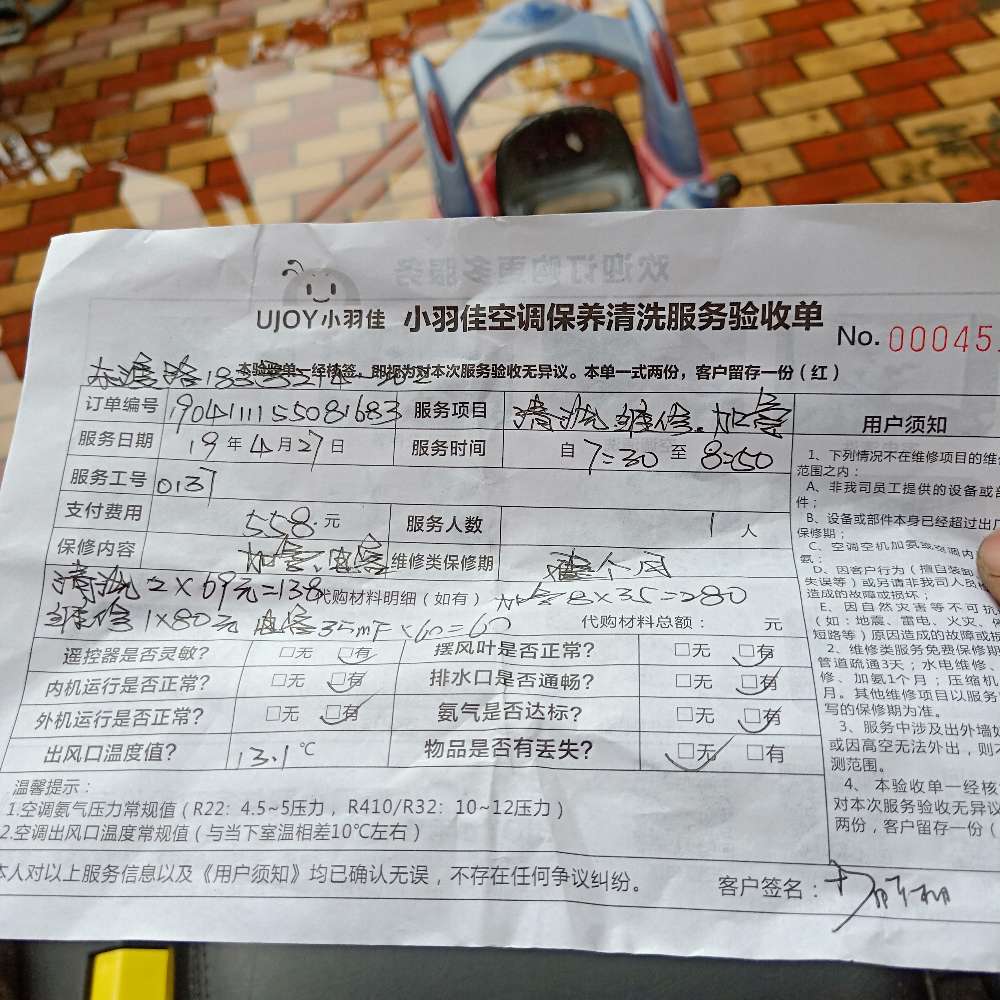 欢迎订购更多服务
UJOY小羽佳 小羽佳空调保养清洗服务验收单 No. 00045
本验收单一经核签，即视为对本次服务验收无异议。本单一式两份，客户留存一份（红）
订单编号 1904111155081683 服务项目 清洗 维修 加氨 用户须知
服务日期 19年4月27日 服务时间 自7:30至8:50
服务工号 0137
支付费用 558.元 服务人数 1人
保修内容 加氨、电容 维修类保修期 个月
清洗2×69元=138 代购材料明细（如有） 加氨8×35=280
维修1×80元 电容35mF×60=60 代购材料总额： 元
遥控器是否灵敏？ □无 □有 摆风叶是否正常？ □无 □有
内机运行是否正常？ □无 □有 排水口是否通畅？ □无 □有
外机运行是否正常？ □无 □有 氨气是否达标？ □无 □有
出风口温度值？ 13.1℃ 物品是否有丢失？ □无 □有
温馨提示：
1.空调氨气压力常规值（R22：4.5~5压力，R410/R32：10~12压力）
2.空调出风口温度常规值（与当下室温相差10℃左右）
本人对以上服务信息以及《用户须知》均已确认无误，不存在任何争议纠纷。 客户签名：
1、下列情况不在维修项目的维
范围之内：
A、非我司员工提供的设备或部
件；
B、设备或部件本身已经超过出厂
保修期；
C、空调空机加氨或空调内
氨；
D、因客户行为（擅自装卸
失误等）或另请非我司人员
造成的故障或损坏；
E、因自然灾害等不可抗
（如：地震、雷电、火灾、
短路等）原因造成的故障或损
2、维修类服务免费保修期
管道疏通3天；水电维修、
修、加氨1个月；压缩机
月。其他维修项目以服务
写的保修期为准。
3、服务中涉及出外墙
或因高空无法外出，则
测范围。
4、本验收单一经核
对本次服务验收无异议
两份，客户留存一份（